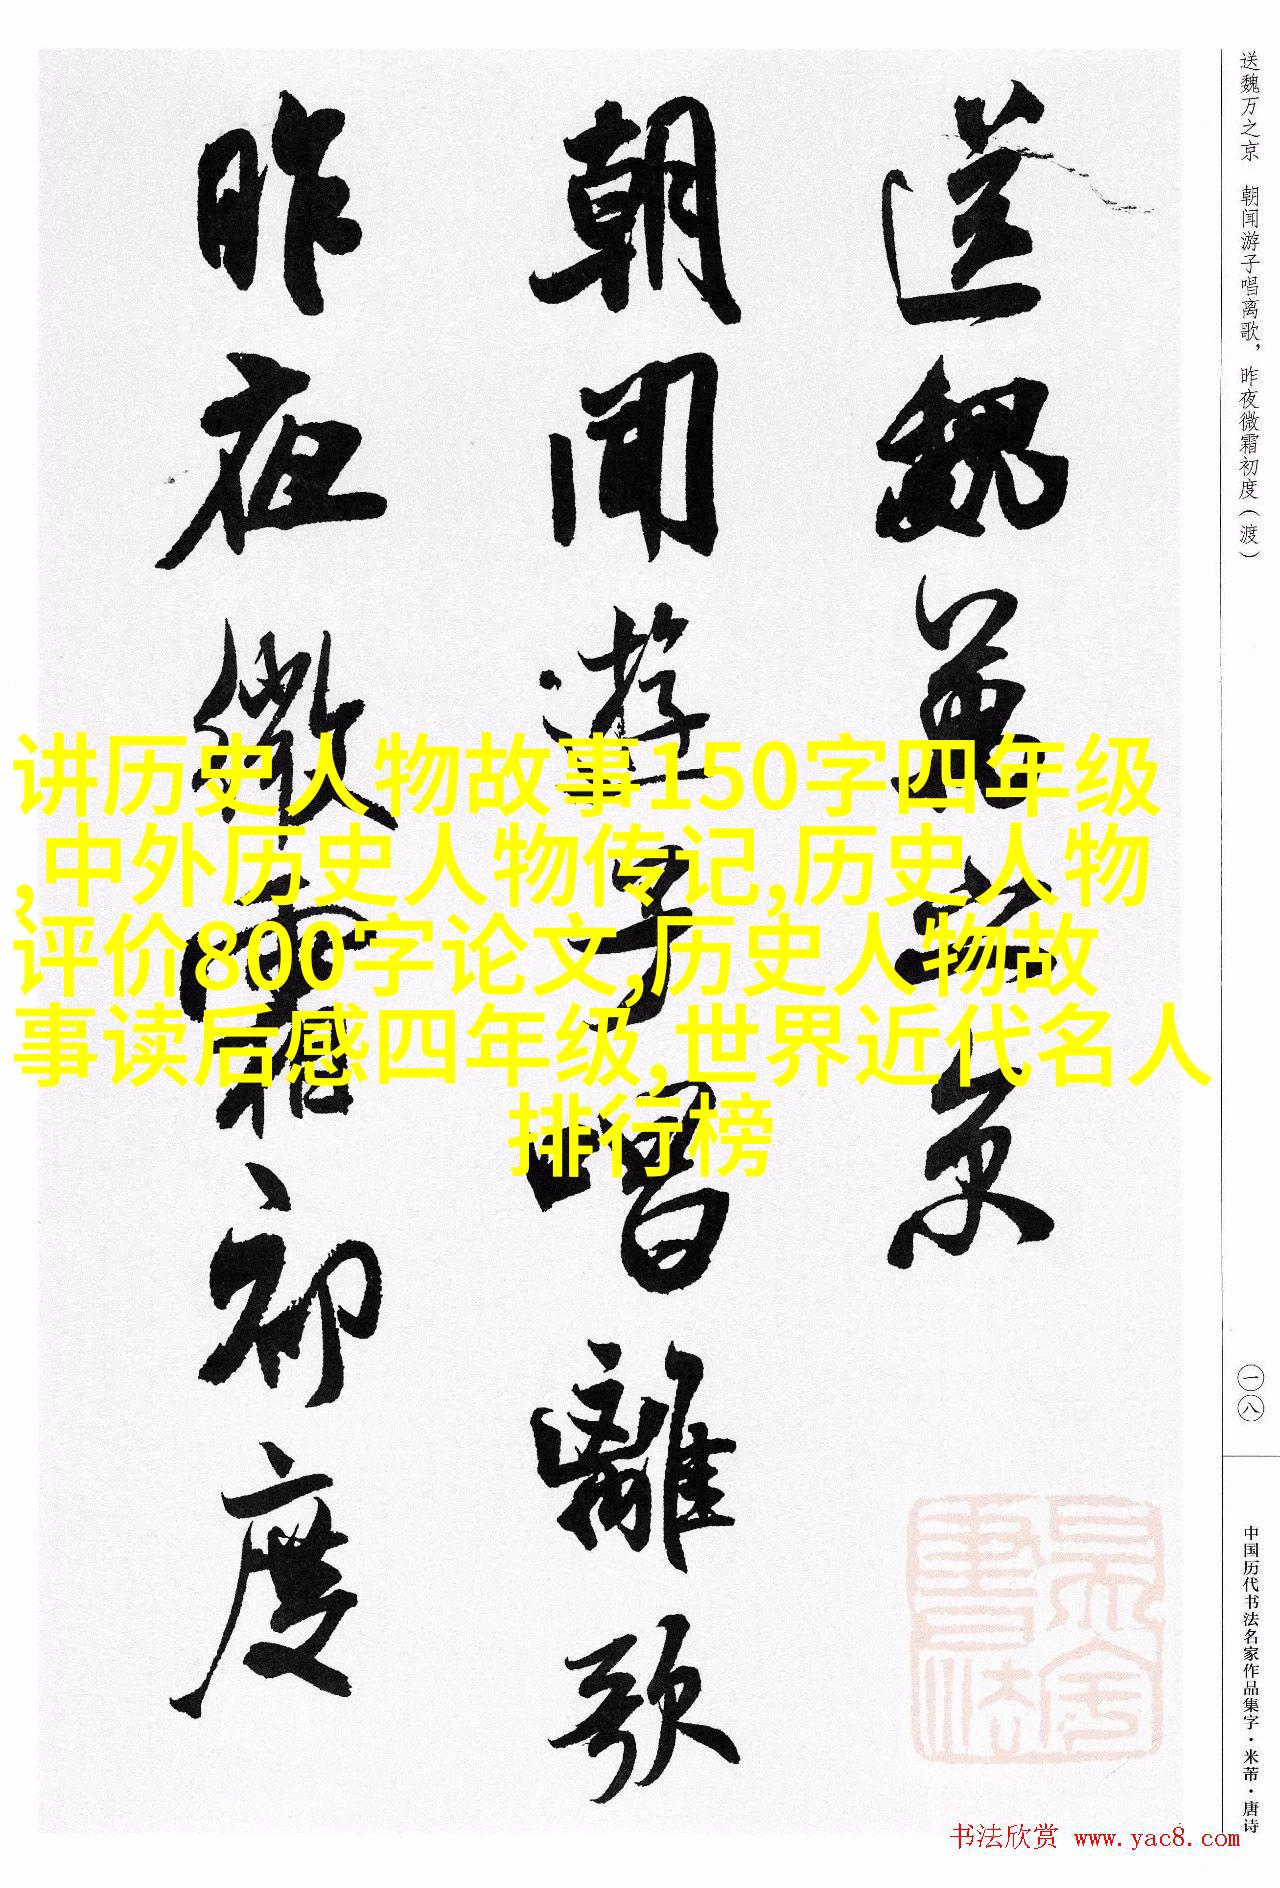 送魏万之京 朝闻游子唱离歌，昨夜微霜初度（渡）
送魏萬之京
朝聞遊子唱離歌
昨夜微霜初度
讲历史人物故事150字四年级
,中外历史人物传记,历史人物
评价800字论文,历史人物故
事读后感四年级,世界近代名人
排行榜
一八
中国历代书法名家作品集字·米芾·唐诗
书法欣赏 www.yac8.com